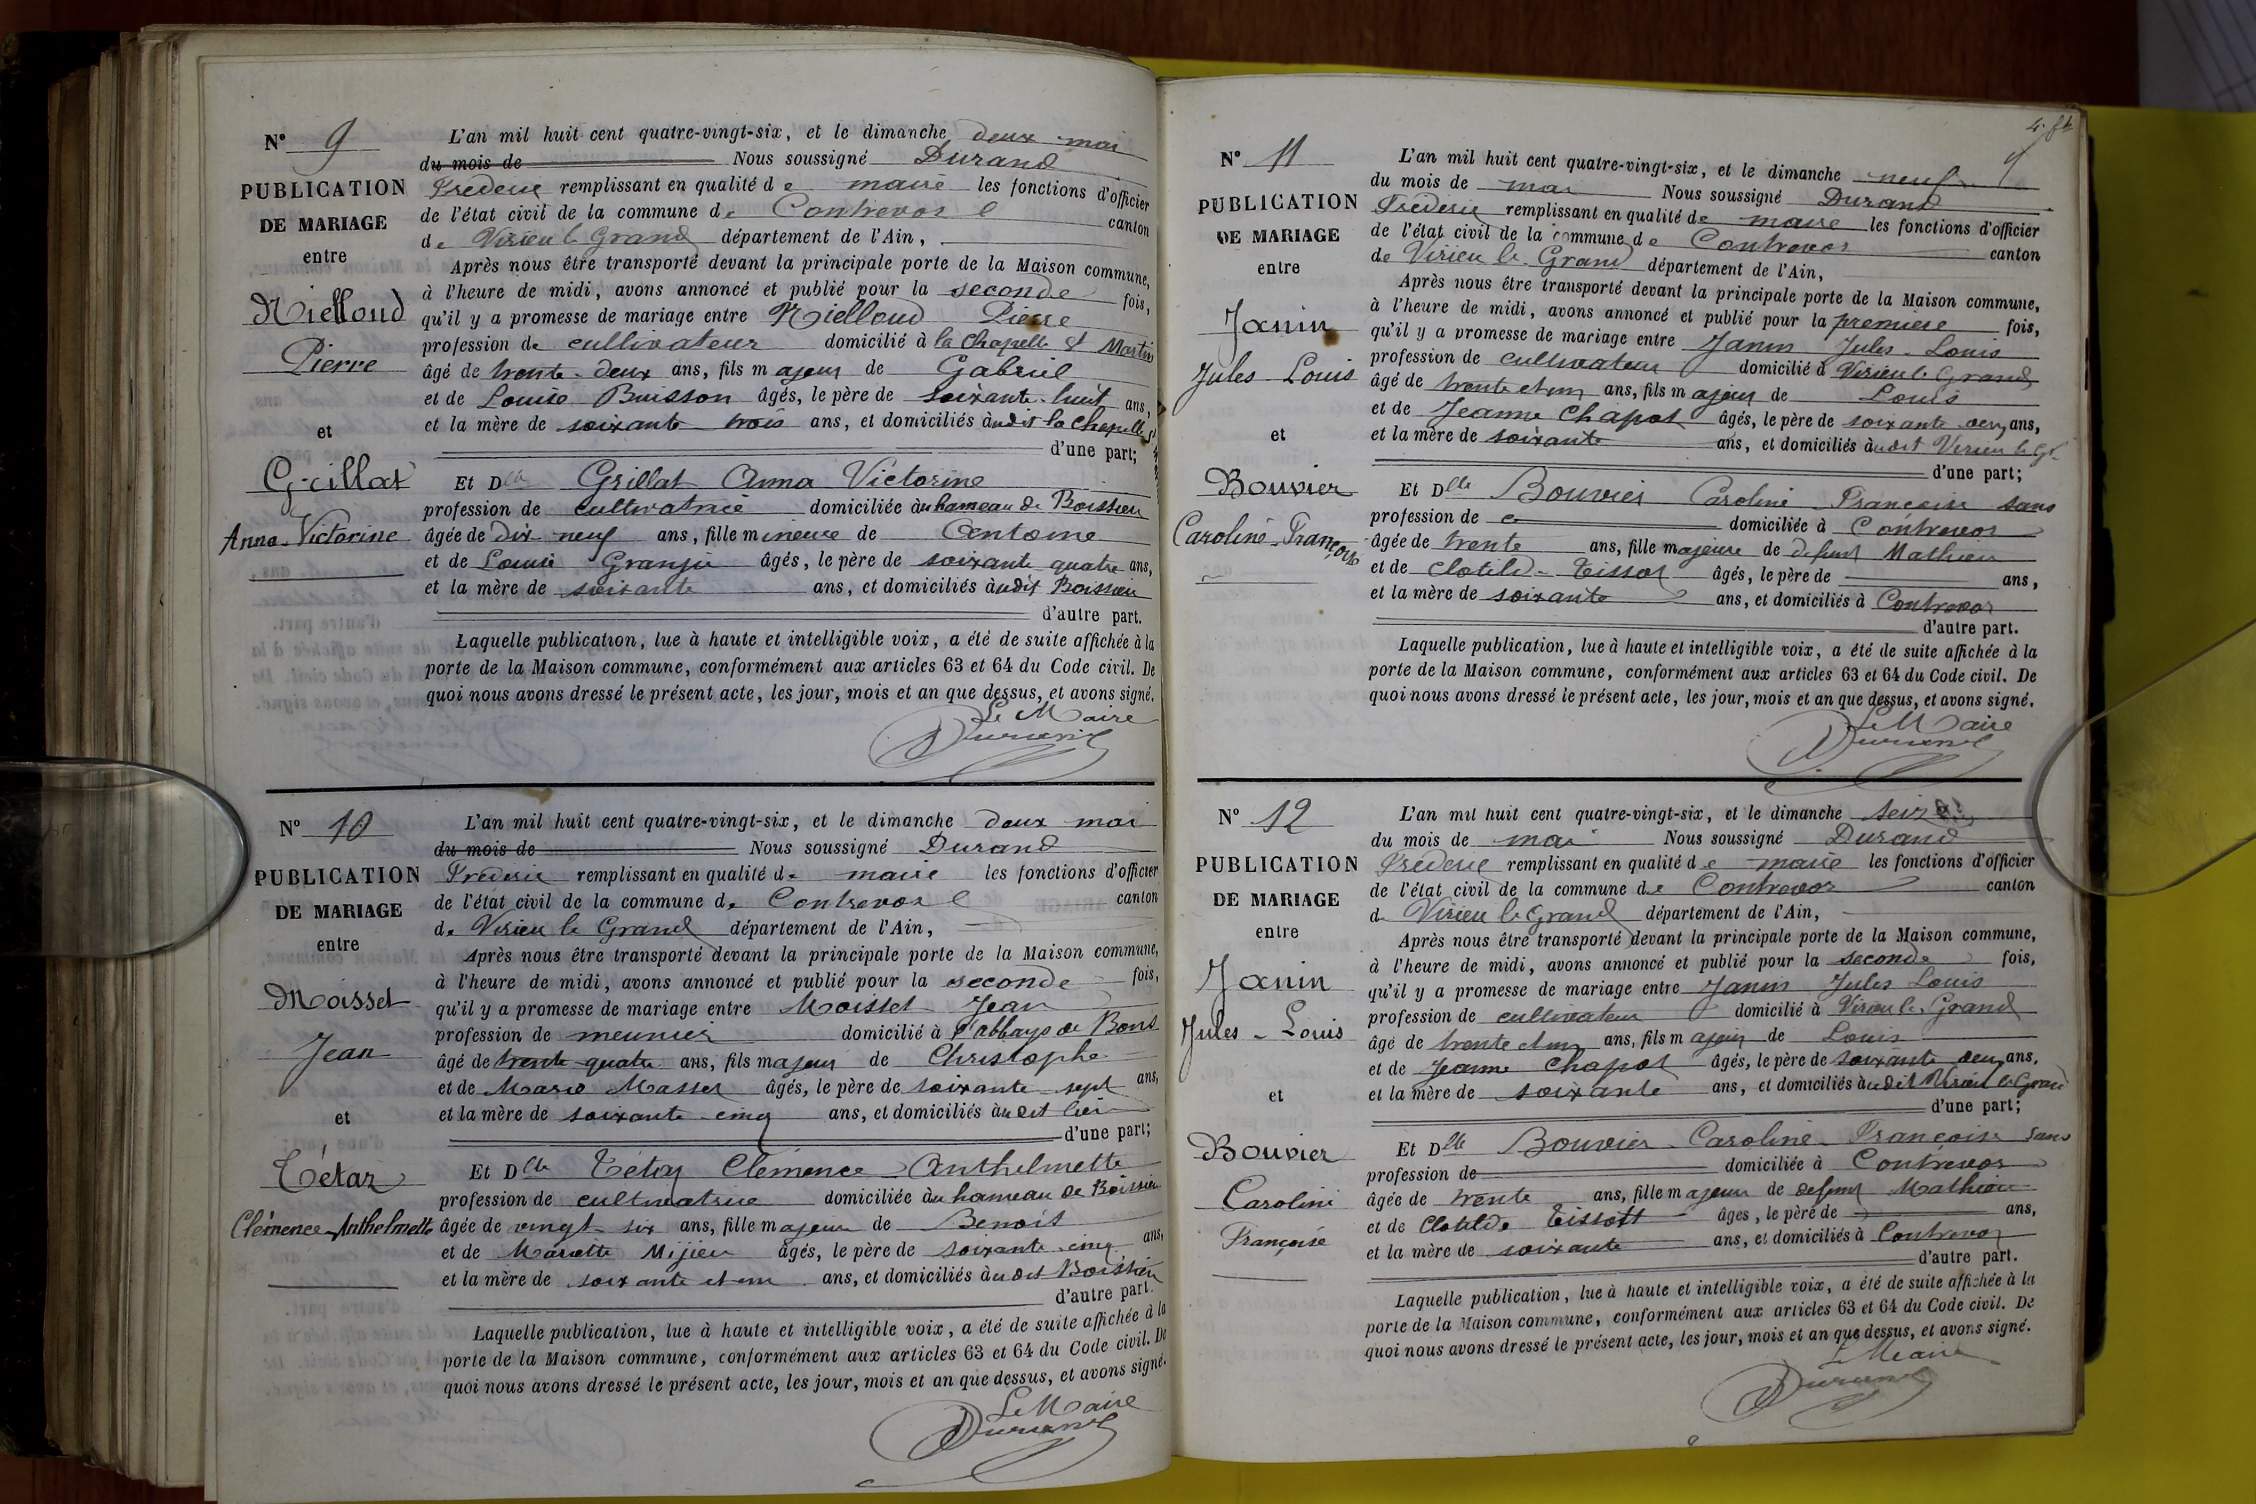 N° 9
PUBLICATION
DE MARIAGE
entre
Niellond
Pierre
et
Grillat
Anna-Victorine
L'an mil huit cent quatre-vingt-six, et le dimanche deux mai
du mois de Nous soussigné Durand
Frederic remplissant en qualité de maire les fonctions d'officier
de l'état civil de la commune de Contrevoz canton
de Virieu le Grand département de l'Ain,
Après nous être transporté devant la principale porte de la Maison commune,
à l'heure de midi, avons annoncé et publié pour la seconde fois,
qu'il y a promesse de mariage entre Niellond Pierre
profession de cultivateur domicilié à la Chapelle St Martin
âgé de trente-deux ans, fils majeur de Gabriel
et de Louise Buisson âgés, le père de soixante-huit ans,
et la mère de soixante trois ans, et domiciliés àudit la Chapelle St
d'une part;
Et Dlle Grillat Anna Victorine
profession de cultivatrice domiciliée àu hameau de Boissieu
âgée de dix neuf ans, fille mineure de Antoine
et de Louise Granjie âgés, le père de soixante quatre ans,
et la mère de soixante ans, et domiciliés àudit Boissieu
d'autre part.
Laquelle publication, lue à haute et intelligible voix, a été de suite affichée à la
porte de la Maison commune, conformément aux articles 63 et 64 du Code civil. De
quoi nous avons dressé le présent acte, les jour, mois et an que dessus, et avons signé.
Le Maire
Durand
N° 10
PUBLICATION
DE MARIAGE
entre
Moisset
Jean
et
Tétaz
Clémence-Anthelmette
L'an mil huit cent quatre-vingt-six, et le dimanche deux mai
du mois de Nous soussigné Durand
Frederic remplissant en qualité de maire les fonctions d'officier
de l'état civil de la commune de Contrevoz canton
de Virieu le Grand département de l'Ain,
Après nous être transporté devant la principale porte de la Maison commune,
à l'heure de midi, avons annoncé et publié pour la seconde fois,
qu'il y a promesse de mariage entre Moisset Jean
profession de meunier domicilié à l'abbaye de Bons
âgé de trente quatre ans, fils majeur de Christophe
et de Marie Masset âgés, le père de soixante sept ans,
et la mère de soixante-cinq ans, et domiciliés àudit lieu
d'une part;
Et Dlle Tétaz Clémence Anthelmette
profession de cultivatrice domiciliée àu hameau de Boissieu
âgée de vingt-six ans, fille majeure de Benoit
et de Mariette Mijieu âgés, le père de soixante-cinq ans,
et la mère de soixante et un ans, et domiciliés àudit Boissieu
d'autre part.
Laquelle publication, lue à haute et intelligible voix, a été de suite affichée à la
porte de la Maison commune, conformément aux articles 63 et 64 du Code civil. De
quoi nous avons dressé le présent acte, les jour, mois et an que dessus, et avons signé.
Le Maire
Durand
N° 11
PUBLICATION
DE MARIAGE
entre
Janin
Jules-Louis
et
Bouvier
Caroline-Françoise
L'an mil huit cent quatre-vingt-six, et le dimanche neuf
du mois de mai Nous soussigné Durand
Frederic remplissant en qualité de maire les fonctions d'officier
de l'état civil de la commune de Contrevoz canton
de Virieu le Grand département de l'Ain,
Après nous être transporté devant la principale porte de la Maison commune,
à l'heure de midi, avons annoncé et publié pour la première fois,
qu'il y a promesse de mariage entre Janin Jules-Louis
profession de cultivateur domicilié à Virieu le Grand
âgé de trente et un ans, fils majeur de Louis
et de Jeanne Chapot âgés, le père de soixante deux ans,
et la mère de soixante ans, et domiciliés àudit Virieu le Gd
d'une part;
Et Dlle Bouvier Caroline-Françoise sans
profession de domiciliée à Contrevoz
âgée de trente ans, fille majeure de defunt Mathieu
et de Clotilde Tissot âgés, le père de ans,
et la mère de soixante ans, et domiciliés à Contrevoz
d'autre part.
Laquelle publication, lue à haute et intelligible voix, a été de suite affichée à la
porte de la Maison commune, conformément aux articles 63 et 64 du Code civil. De
quoi nous avons dressé le présent acte, les jour, mois et an que dessus, et avons signé.
Le Maire
Durand
N° 12
PUBLICATION
DE MARIAGE
entre
Janin
Jules-Louis
et
Bouvier
Caroline
Françoise
L'an mil huit cent quatre-vingt-six, et le dimanche seize
du mois de mai Nous soussigné Durand
Frederic remplissant en qualité de maire les fonctions d'officier
de l'état civil de la commune de Contrevoz canton
de Virieu le Grand département de l'Ain,
Après nous être transporté devant la principale porte de la Maison commune,
à l'heure de midi, avons annoncé et publié pour la seconde fois,
qu'il y a promesse de mariage entre Janin Jules Louis
profession de cultivateur domicilié à Virieu le Grand
âgé de trente et un ans, fils majeur de Louis
et de Jeanne Chapot âgés, le père de soixante deux ans,
et la mère de soixante ans, et domiciliés àudit Virieu le Grand
d'une part;
Et Dlle Bouvier-Caroline-Françoise sans
profession de domiciliée à Contrevoz
âgée de trente ans, fille majeure de defunt Mathieu
et de Clotilde Tissott âgés, le père de ans,
et la mère de soixante ans, et domiciliés à Contrevoz
d'autre part.
Laquelle publication, lue à haute et intelligible voix, a été de suite affichée à la
porte de la Maison commune, conformément aux articles 63 et 64 du Code civil. De
quoi nous avons dressé le présent acte, les jour, mois et an que dessus, et avons signé.
Le Maire
Durand